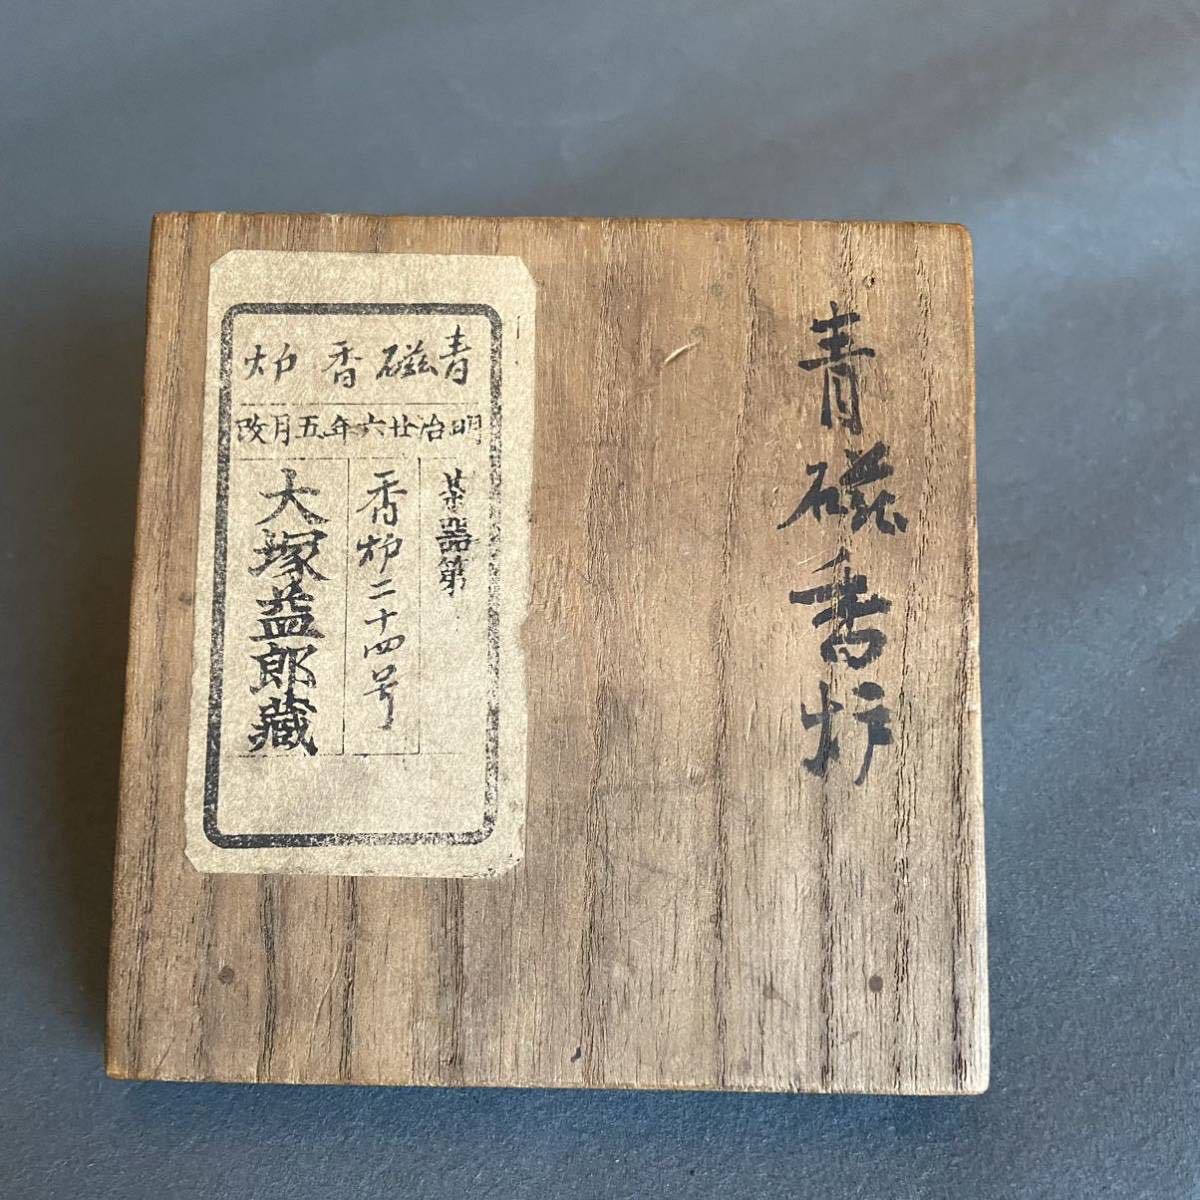 青磁香炉
青磁香炉
明治廿六年五月改
茶器第
香炉二十四号
大塚益郎蔵